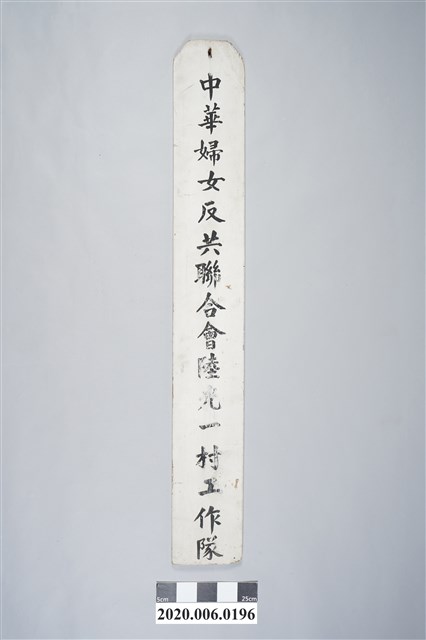 中華婦女反共聯合會陸光一村工作隊
5cm
25cm
2020.006.0196